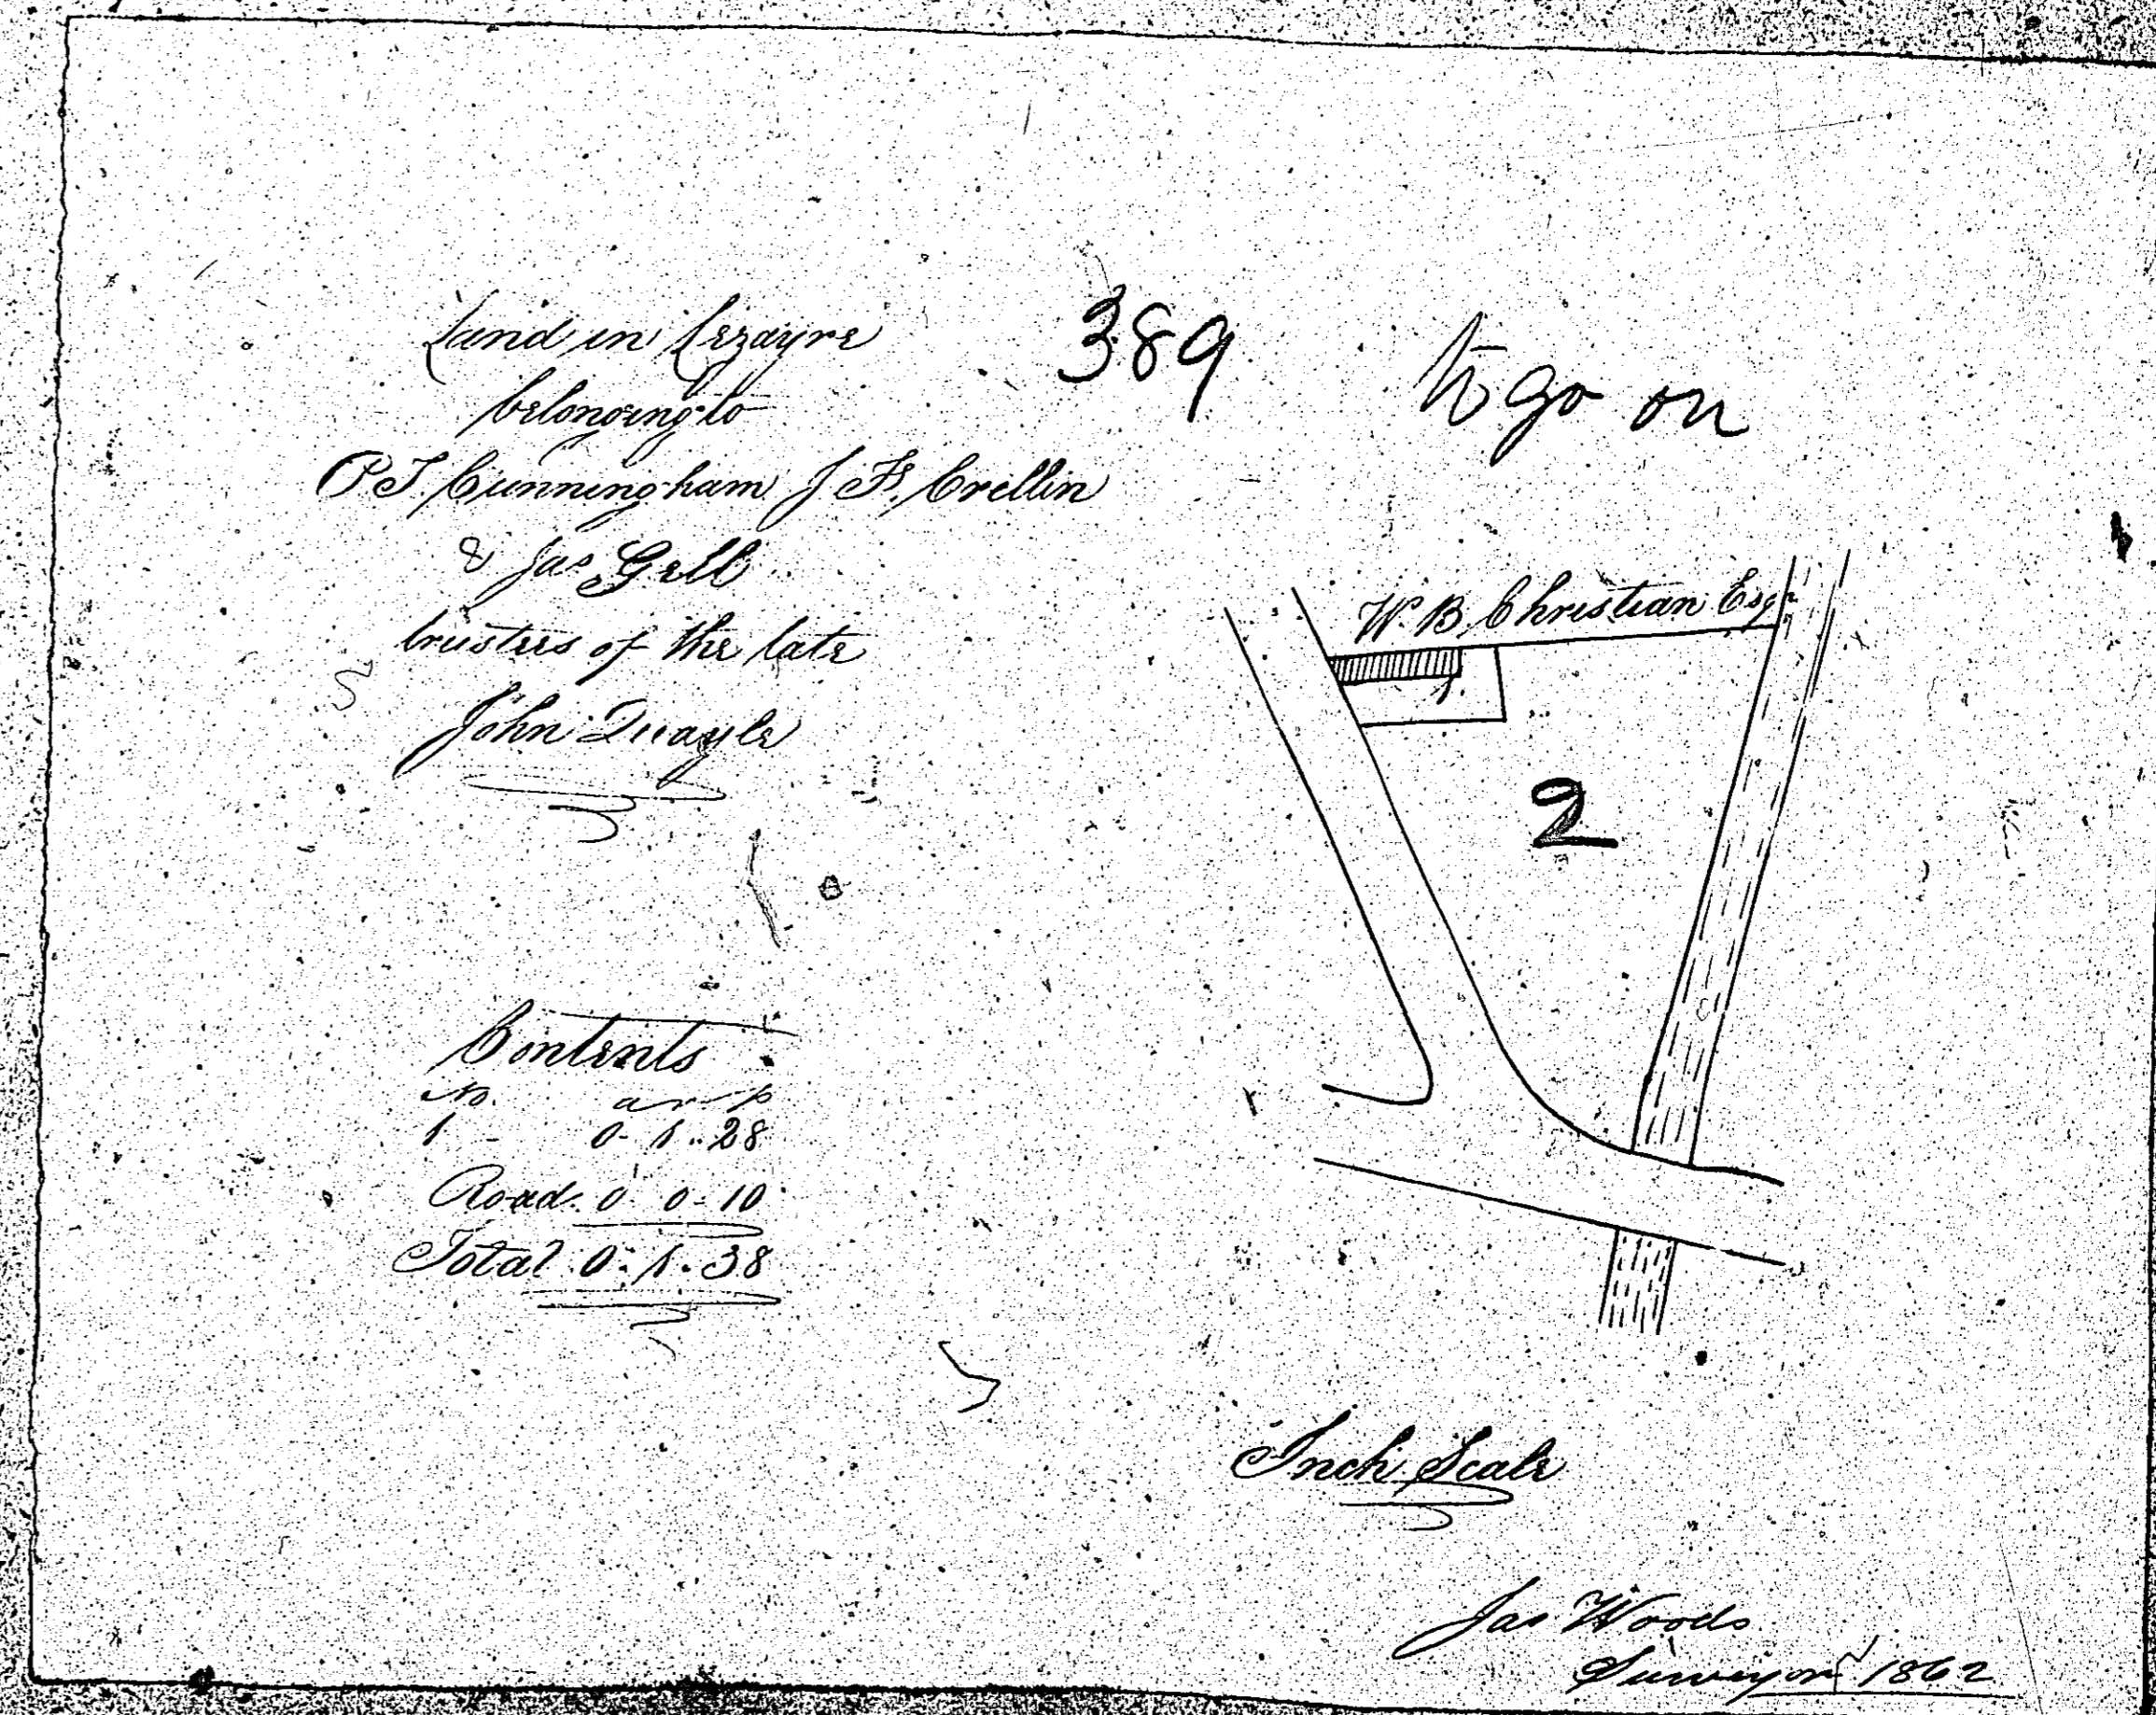 Land in Lezayre
belonging to
P T Cunningham J F. Crellin
& Jas Gell
trustees of the late
John Quayle
389
to go on
W. B. Christian Esqr
1.
2
Contents
No. a r p
1 - 0 - 1 .. 28
Road. 0 - 0 - 10
Total 0 - 1 - 38
Inch Scale
Jas Woods
Surveyor 1862